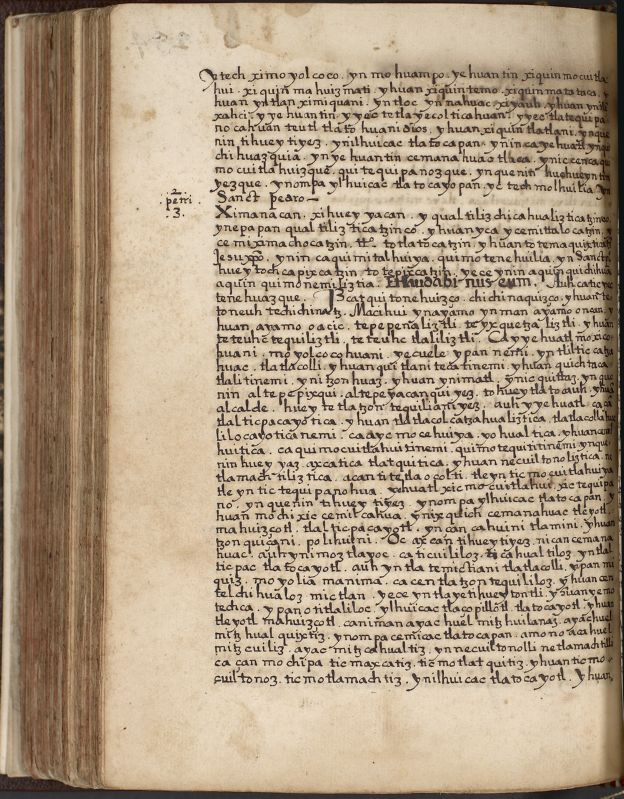 ytech ximo yol coco. yn mo huampo. ye huan tin xiquin mo cuitla
hui. xi quin ma huiz mati. yhuan xiquin temo. xiquin ma ta taca. y
huan yntlan ximiquani. yn tloc. yn nahuac xiyauh. yhuan ynilh
xahci. y ye huan tin. y yec te tla yecol tica huan. y yec tla te qui pa
no ca huan teutl tlato huani dios. yhuan xi quin tla tlani. yn que
nin ti huey tiyez. ynilhuicac tlato ca pan. ynin ca ye huatl yn qui
chi huaz quia. yn ye huan tin cemana huac tlaca. ynic cen ca qui
mo cui tla huiz que. qui te qui pa noz que. yn que nin huehueyntin
yez que. ynompa ylhuicac tla to ca yo pan. yc tech mol hui lia yn
Sanct pedro—
2
petri
3.
Xi ma na can. xi huey ya can. y qual tiliz chi ca hua liz tica tzinco.
yne pa pan qual tiliz tica tzinco. yhuan yca y cemitta lo ca tzin, y
ce mixi ma cho ca tzin. tto to tlato ca tzin, yhuan to tema quix ti ca tzin
Jesu xpo. ynin ca qui mi tal hui ya. qui mo te ne huilia. yn Sancto
huey to ch ca pix ca tzin to te pix ca tzin. ye ce ynin a quin qui chi hua
a quin qui mo ne mi liz tia. Et lau da bi mus eum. Auh ca tic ye
tene huaz que. Iz cat qui to ne huiz co. chi chi na quiz co. yhuan te
to neuh te chi china tz. Maci hui yn a ya mo yn man a ya mo on can. y
huan aya mo o a cic. te pe peña liz tli. te yx que tza liz tli. yhuan
te teuhc te qui liz tli. te teu hc tla li liz tli. Ca y ye huatl mo xi co
huani. mo yol co co huani. ye cuele. y pan nemi. yn tlil tic ca tza
huac. tla tla colli. yhuan qui tlani te ca tinemi. yhuan quich ta ca
tla li tinemi. y ni tzon huaz. yhuan ynimatl. ynic quittaz. yn que
nin al te pe pix qui. al te pe ya can qui yez. to huey tla to cauh. yhuan
al cal de. huey te tla tzon te qui li ani yez. auh y ye huatl ca ça
tlal tic pa ca yo tica. yhuan tla tla col ca tza hua liz tica. tla tla colla hue
li lo ca yo tica nemi. ca a yc mo ce hui ya. yo hual tica. yhuan cemil
hui tica. ca qui mo cui tla hui ti nemi. qui mo te qui ti ti nemi. yn que
nin huey yaz axca tica tlat qui tica. yhuan ne cuil to no liz tica. ne
tla mach ti liz tica. a can ti te tla o col ti. tle yn tic mo cui tla hui ya
tle yn tic te qui pa no hua. yehuatl xic mo cui tla hui. xic te qui pa
no. yn que nin ti huey tiyez. ynompa ylhuicac tla to ca pan. y
huan mo chi xic ce mil ca hua. yn ix quich cemana huac tle yotl.
ma huiz cotl. tlal tic pa ca yotl. yn can ca huini tlamini. yhuan
tzon qui çani. poli huini. Oc ax can ti huey tiyez. nican cemana
huac. auh yni moz tla yoc. ca ti cui li loz. ti ca hual tiloz. yn tlal
tic pac tlato ca yotl. auh yn tla te mic ti ani tla tla colli. y pan mi
quiz. mo yo lia manima. ca cen tla tzon te qui li loz. yhuan cen
tel chi hua loz mictlan. ye ce yn tla ye ti huey ton tli. yhuan ye mo
tech ca. y pan o ti tla li loc. ylhuicac tla co pillotl. tla to ca yotl. yhuan
tle yotl mahuizcotl. caniman ayac huel mitz hui lanaz. a yac huel
mitz hual quix tiz. ynompa cemicac tlato ca pan. amo no ac a huel
mitz cui liz. ayac mitz ca hual tiz. yn ne cuil to nolli ne tla mach tilli
ca can mo chi pa tic max ca tiz. tic mo tlat qui tiz. yhuan tic mo
cuil to noz. tic mo tla mach tiz. ynilhuicac tla to ca yotl. yhuan,